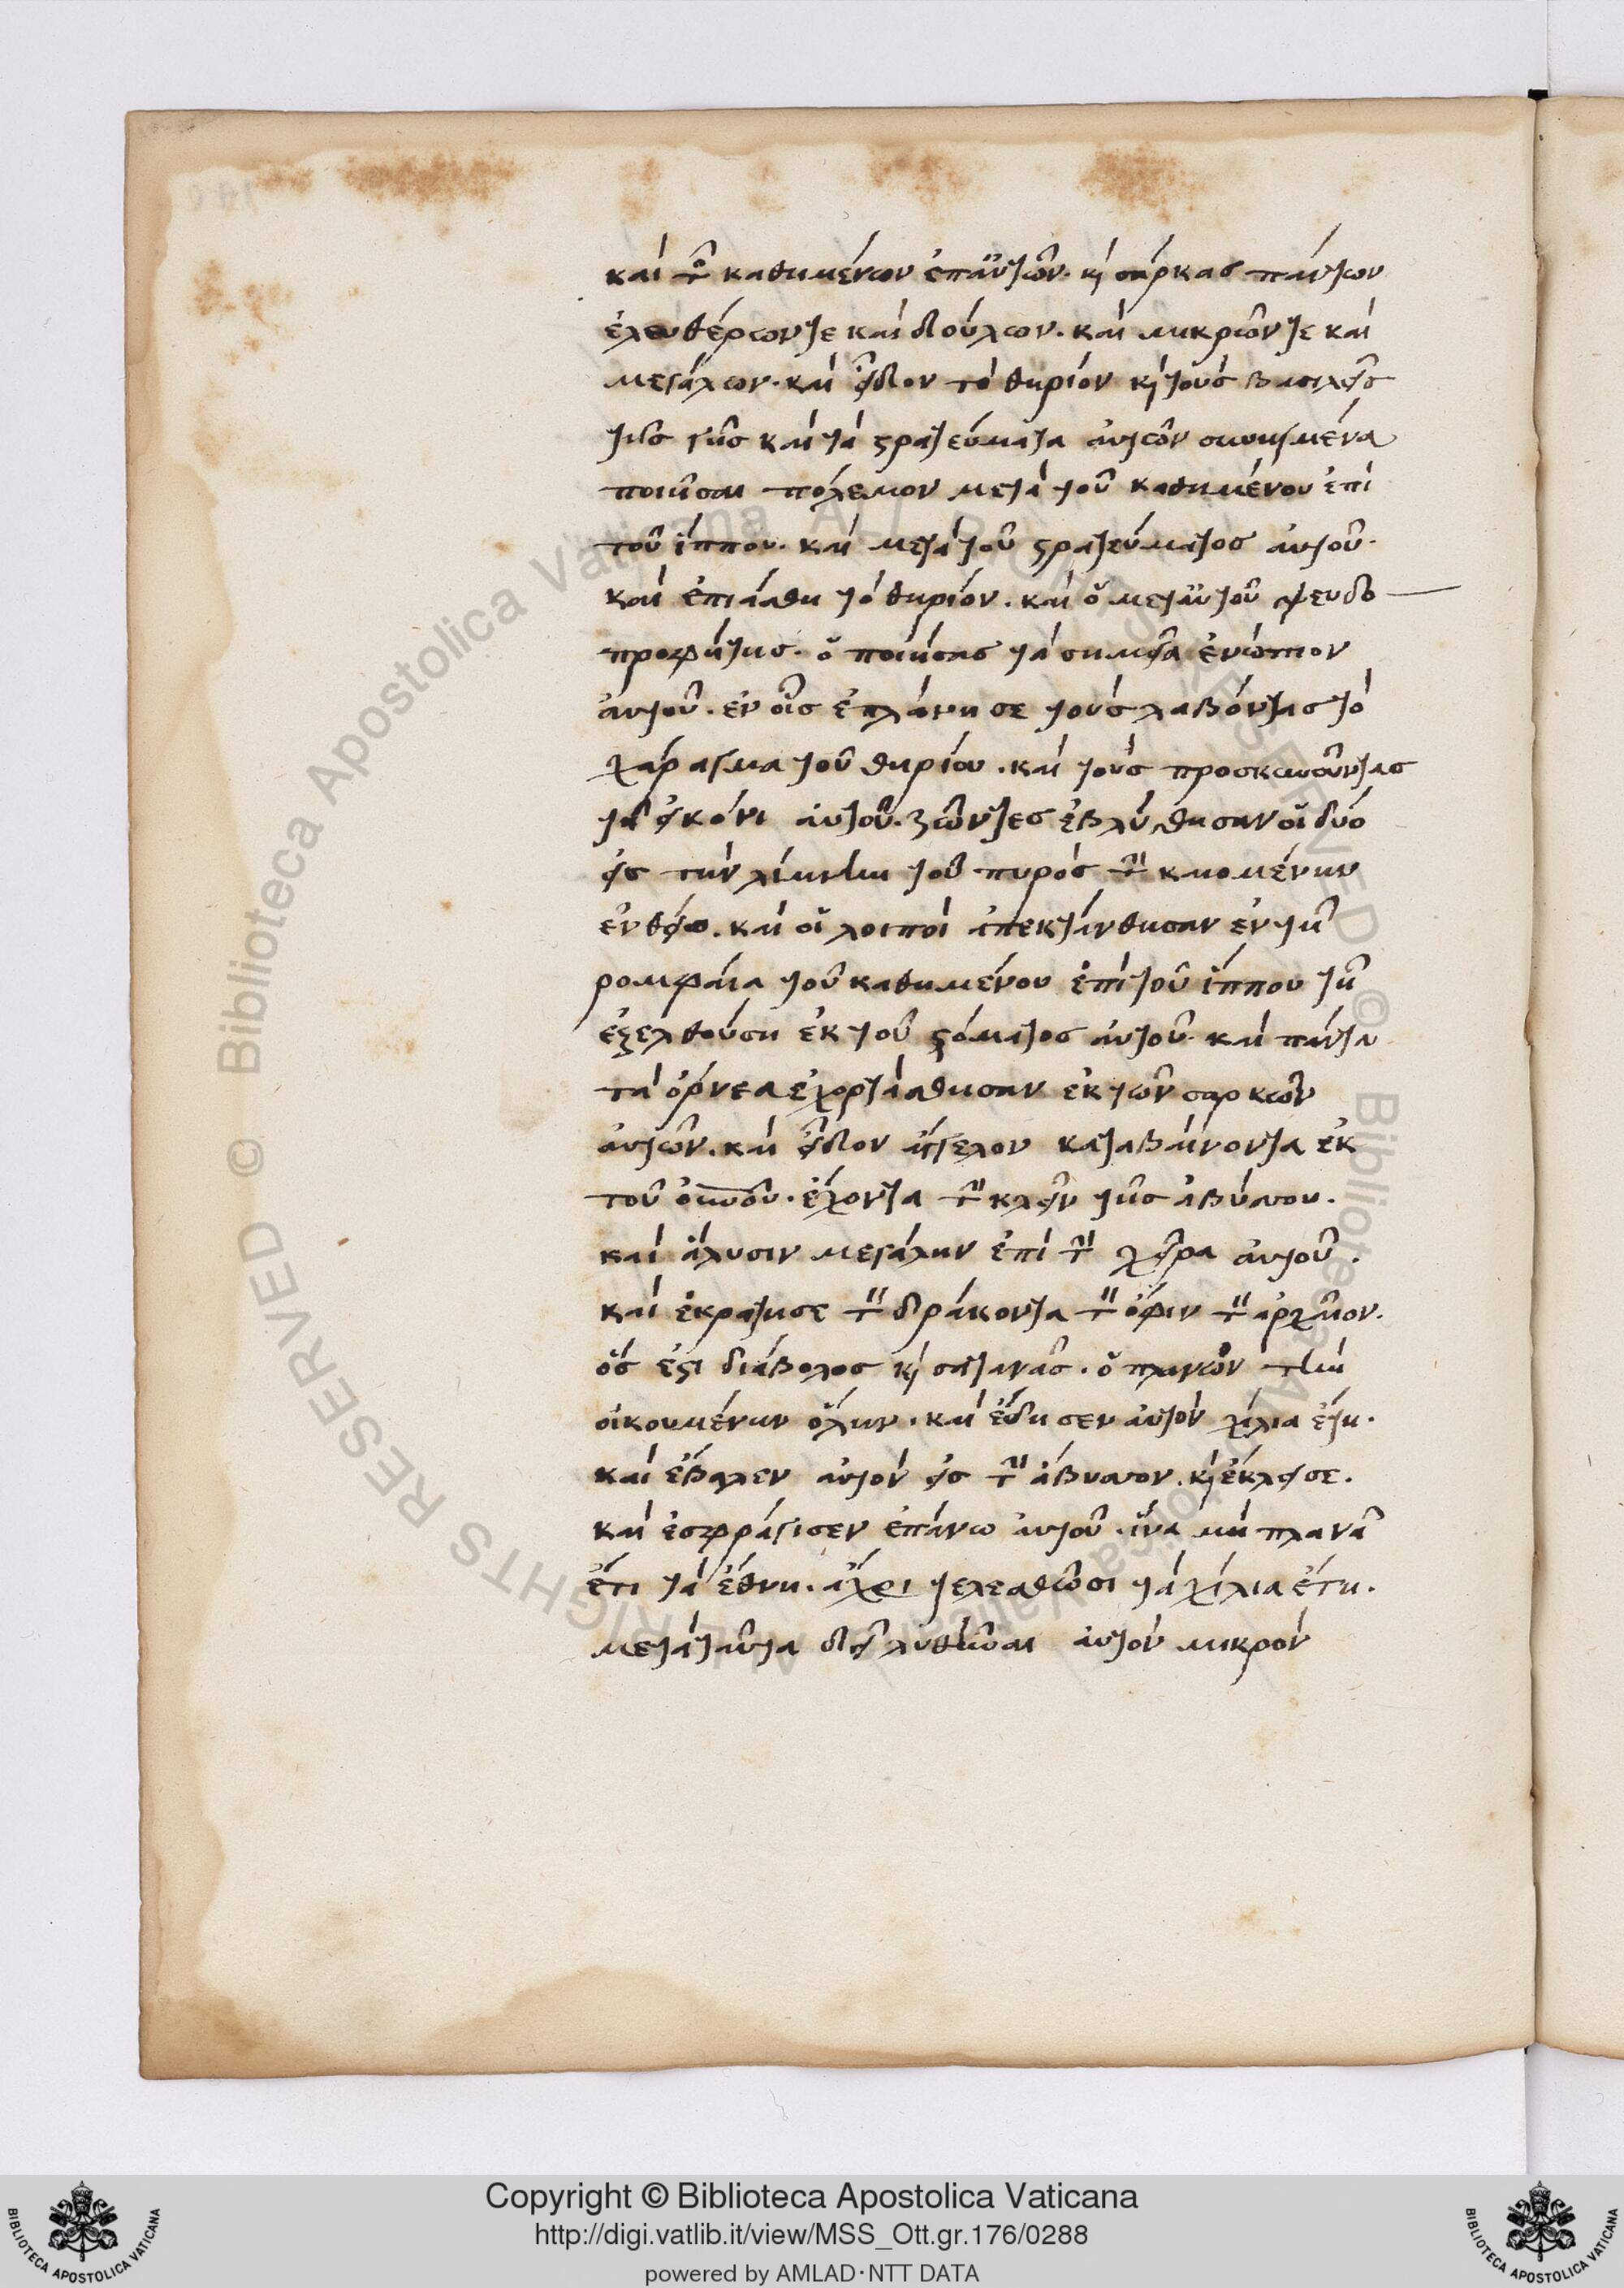 καὶ τῶν καθημένων ἐπ' αὐτῶν. κ̀ σάρκας πάντων
ἐλευθέρων τε καὶ δούλων. καὶ μικρῶν τε καὶ
μεγάλων. καὶ εἶδον τὸ θηρίον κ̀ τοὺς βασιλεῖς
τῆς γῆς καὶ τὰ στρατεύματα αὐτῶν συνηγμένα
ποιῆσαι πόλεμον μετὰ τοῦ καθημένου ἐπὶ
τοῦ ἵππου. καὶ μετὰ τοῦ στρατεύματος αὐτοῦ.
καὶ ἐπιάσθη τὸ θηρίον. καὶ ὁ μετ' αὐτοῦ ψευδο
προφήτης. ὁ ποιήσας τὰ σημεῖα ἐνώπιον
αὐτοῦ. ἐν οἷς ἐπλάνησε τοὺς λαβόντας τὸ
χάραγμα τοῦ θηρίου. καὶ τοὺς προσκυνοῦντας
τῇ εἰκόνι αὐτοῦ. ζῶντες ἐβλήθησαν οἱ δύο
εἰς τὴν λίμνην τοῦ πυρὸς τὴν καιομένην
ἐν θείῳ. καὶ οἱ λοιποὶ ἀπεκτάνθησαν ἐν τῇ
ρομφαία τοῦ καθημένου ἐπὶ τοῦ ἵππου τῇ
ἐξελθούση ἐκ τοῦ στόματος αὐτοῦ. καὶ πάντα
τὰ ὄρνεα ἐχορτάσθησαν ἐκ τῶν σαρκῶν
αὐτῶν. καὶ εἶδον ἄγγελον καταβαίνοντα ἐκ
τοῦ οὐνοῦ. ἔχοντα τὴν κλεῖν τῆς ἀβύσσου.
καὶ ἅλυσιν μεγάλην ἐπὶ τὴν χεῖρα αὐτοῦ.
καὶ ἐκράτησε τὸν δράκοντα τὸν ὄφιν τὸν ἀρχαῖον.
ὅς ἐστι διάβολος κ̀ σατανᾶς. ὁ πλανῶν τὴν
οἰκουμένην ὅλην. καὶ ἔδησεν αὐτὸν χίλια ἔτη.
καὶ ἔβαλεν αὐτὸν εἰς τὴν ἄβυσσον. κ̀ ἔκλεισε.
καὶ ἐσφράγισεν ἐπάνω αὐτοῦ. ἵνα μὴ πλανᾶ
ἔτι τὰ ἔθνη. ἄχρι τελεσθῶσι τὰ χίλια ἔτη.
μετὰ ταῦτα δεῖ λυθῆναι αὐτὸν μικρὸν
Copyright © Biblioteca Apostolica Vaticana
http://digi.vatlib.it/view/MSS_Ott.gr.176/0288
powered by AMLAD·NTT DATA